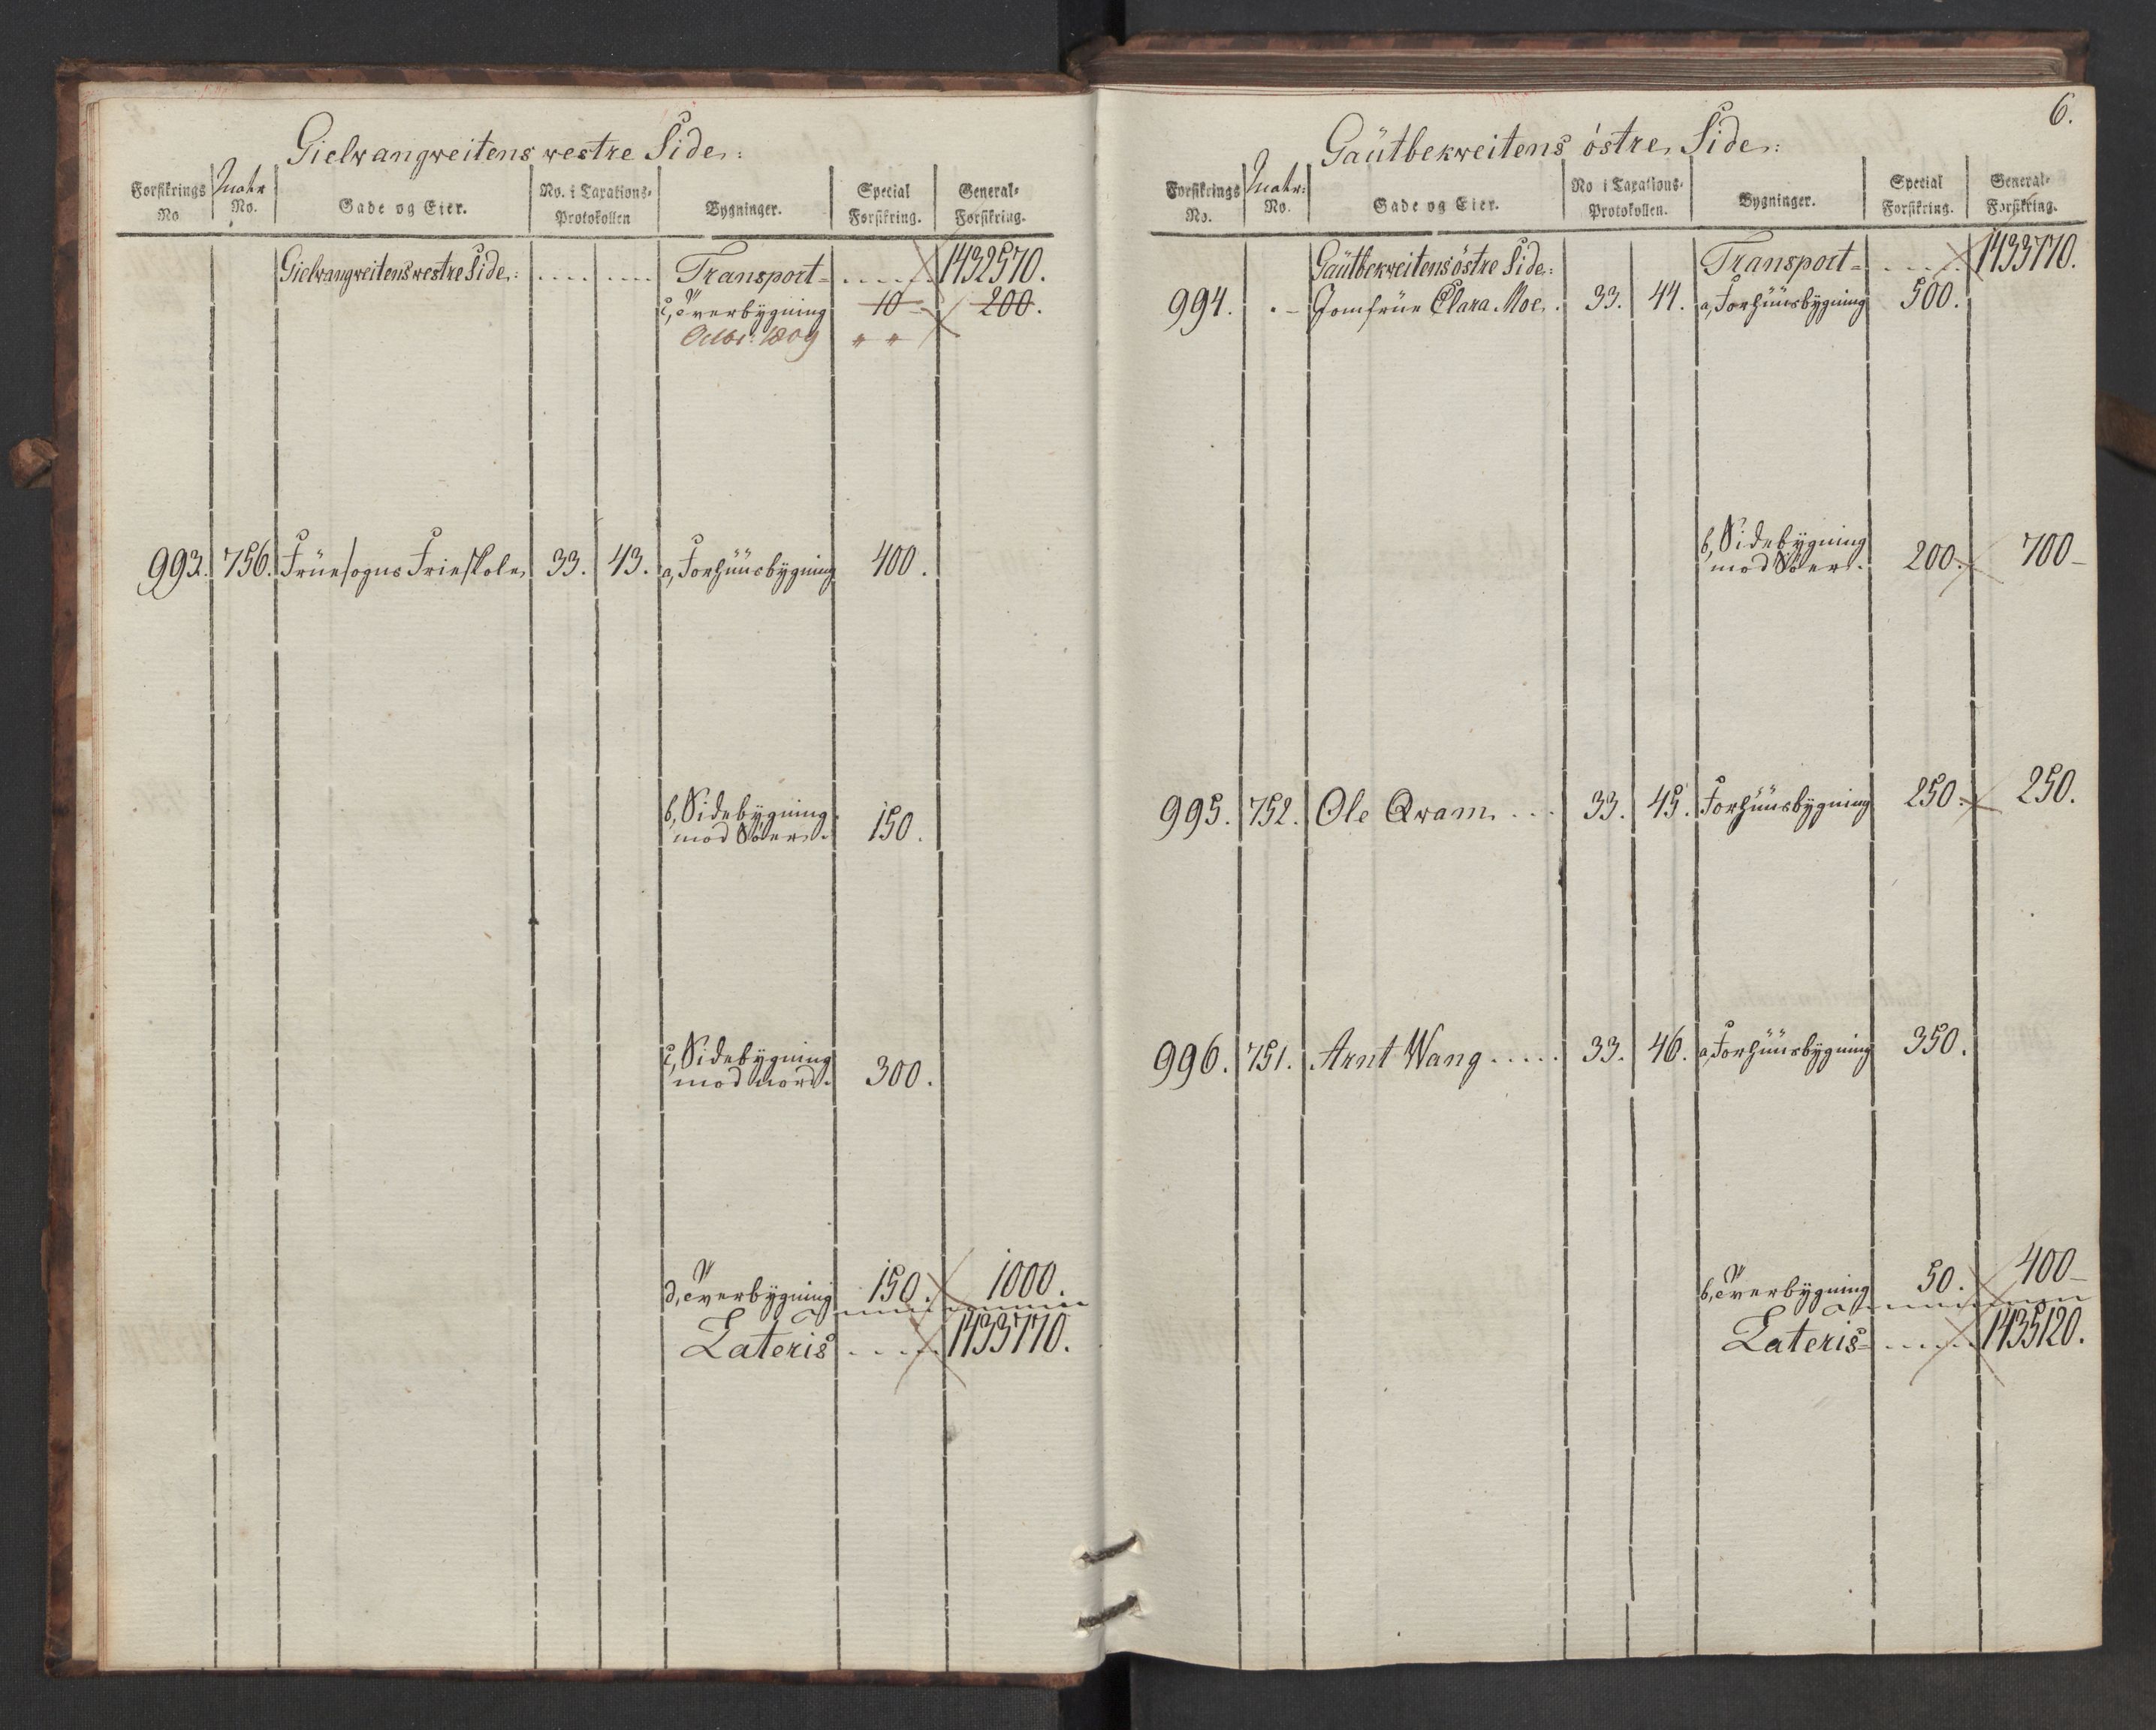 Gielwangweitens westre Side:
Forsikrings No. Matr No. Gade og Eier. No. i Taxations-Protokollen Bygninger. Special Forsikring. General-Forsikring.
Gielwangweitens westre Side: . . . . . . . . Transport = . . . . . 1432570.
c, Tverbygning 10 200.
Octbr: 1809 " "
993. 756. Früesogns Frieskole 33. 43. a, Forhüüsbygning 400.
b, Sidebygning
mod Söer. 150.
c, Sidebygning
mod nord. 300.
d, Tverbygning 150. 1000.
Lateris . . . . . 1433770.
6.
Gaütbekweitens östre Side:
Forsikrings No. Matr: No. Gade og Eier. No i Taxations-Protokollen. Bygninger. Special Forsikring. General-Forsikring.
Gaütbekweitens östre Side: Transport = . . . . 1433770.
994. . - Jomfrüe Clara Moe. 33. 44. a, Forhüüsbygning 500.
b, Sidebygning
mod Söer. 200. 700-
995. 752. Ole Qvam. . . . 33. 45. Forhüüsbygning 250. 250.
996. 751. Arnt Wang . . . . . 33. 46. a, Forhüüsbygning 350.
b, Tverbygning 50. 400-
Lateris = . . . . . 1435120.